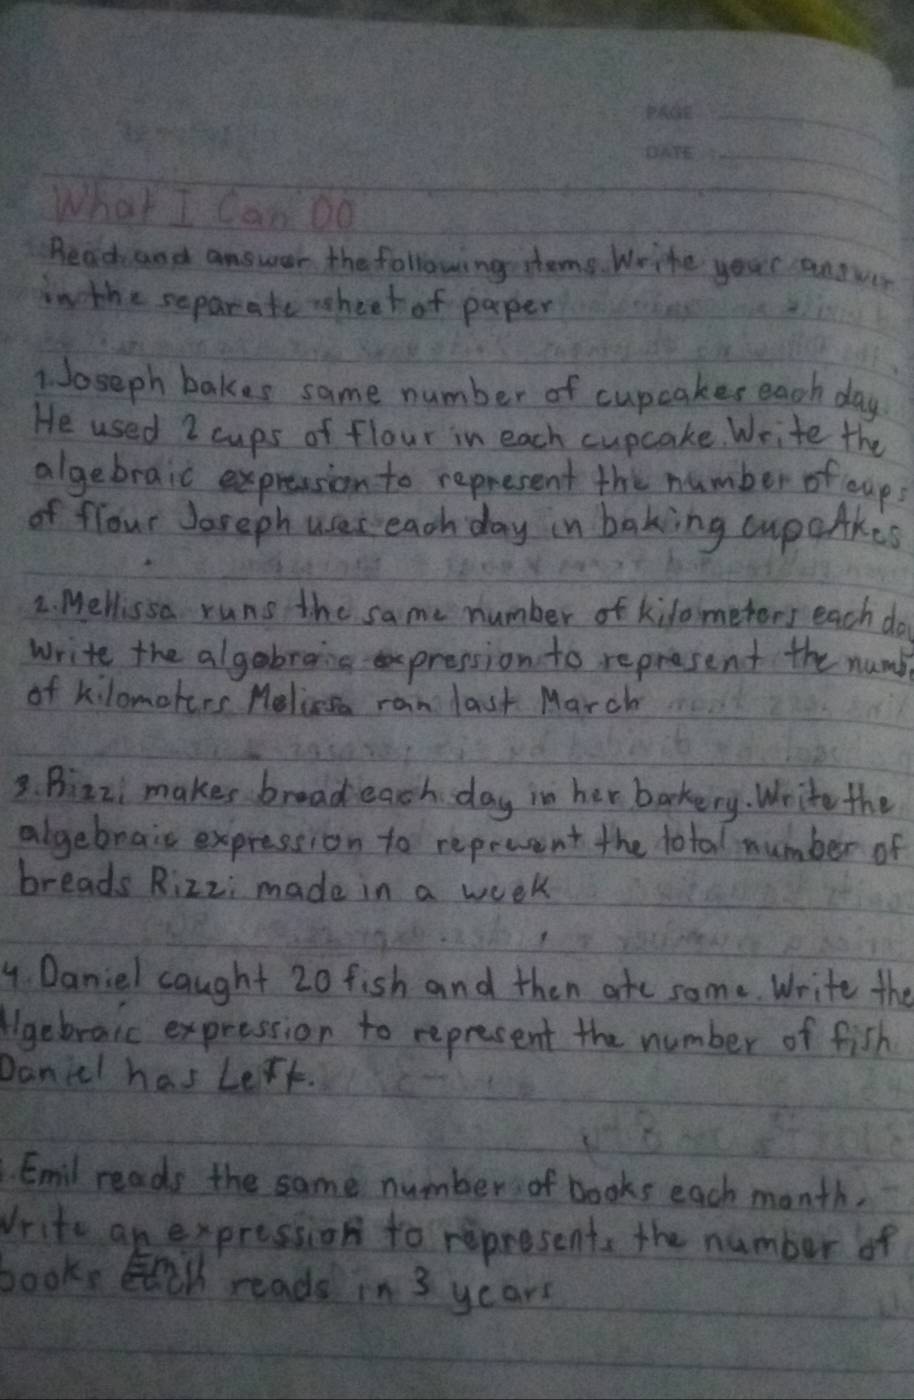 PAGE
DATE
What I Can DO
Read and answer the following items. Write your answer
in the separate sheet of paper
1. Joseph bakes same number of cupcakes each day.
He used 2 cups of flour in each cupcake. Write the
algebraic expression to represent the number of cups
of flour Joseph uses each day in baking cupcAkes
2. Mellissa runs the same number of kilometers each day
Write the algebraic expression to represent the numb
of kilometers Melissa ran last March
3. Rizzi makes bread each day in her bakery. Write the
algebraic expression to represent the total number of
breads Rizzi made in a week
4. Daniel caught 20 fish and then ate some. Write the
Algebraic expression to represent the number of fish
Daniel has Left.
. Emil reads the same number of books each month.
Write an expression to represents the number of
books Emil reads in 3 years